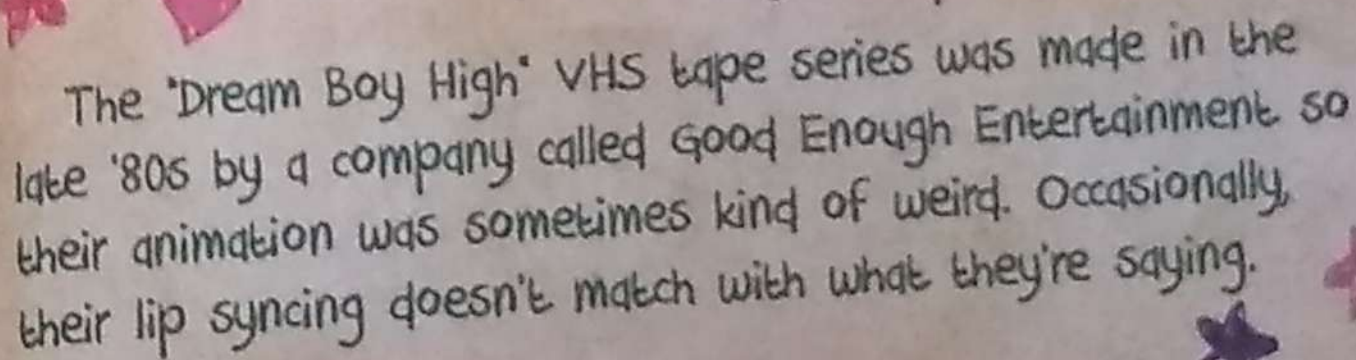 The "Dream Boy High" VHS tape series was made in the
late '80s by a company called Good Enough Entertainment so
their animation was sometimes kind of weird. Occasionally,
their lip syncing doesn't match with what they're saying.